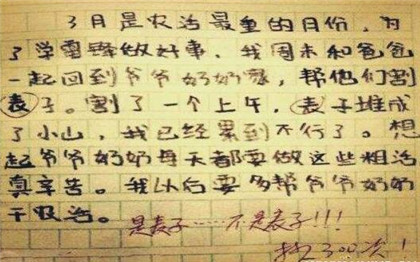 3月是农活最重的月份，为
了学雷锋做好事，我周末和爸爸
一起回到爷爷奶奶家，帮他们割
表子。割了一个上午，表子堆成
了小山，我已经累到不行了。想
起爷爷奶奶每天都要做这些粗活
真辛苦。我以后要多帮爷爷奶奶
干农活。
是麦子……不是表子!!!
抄300次!